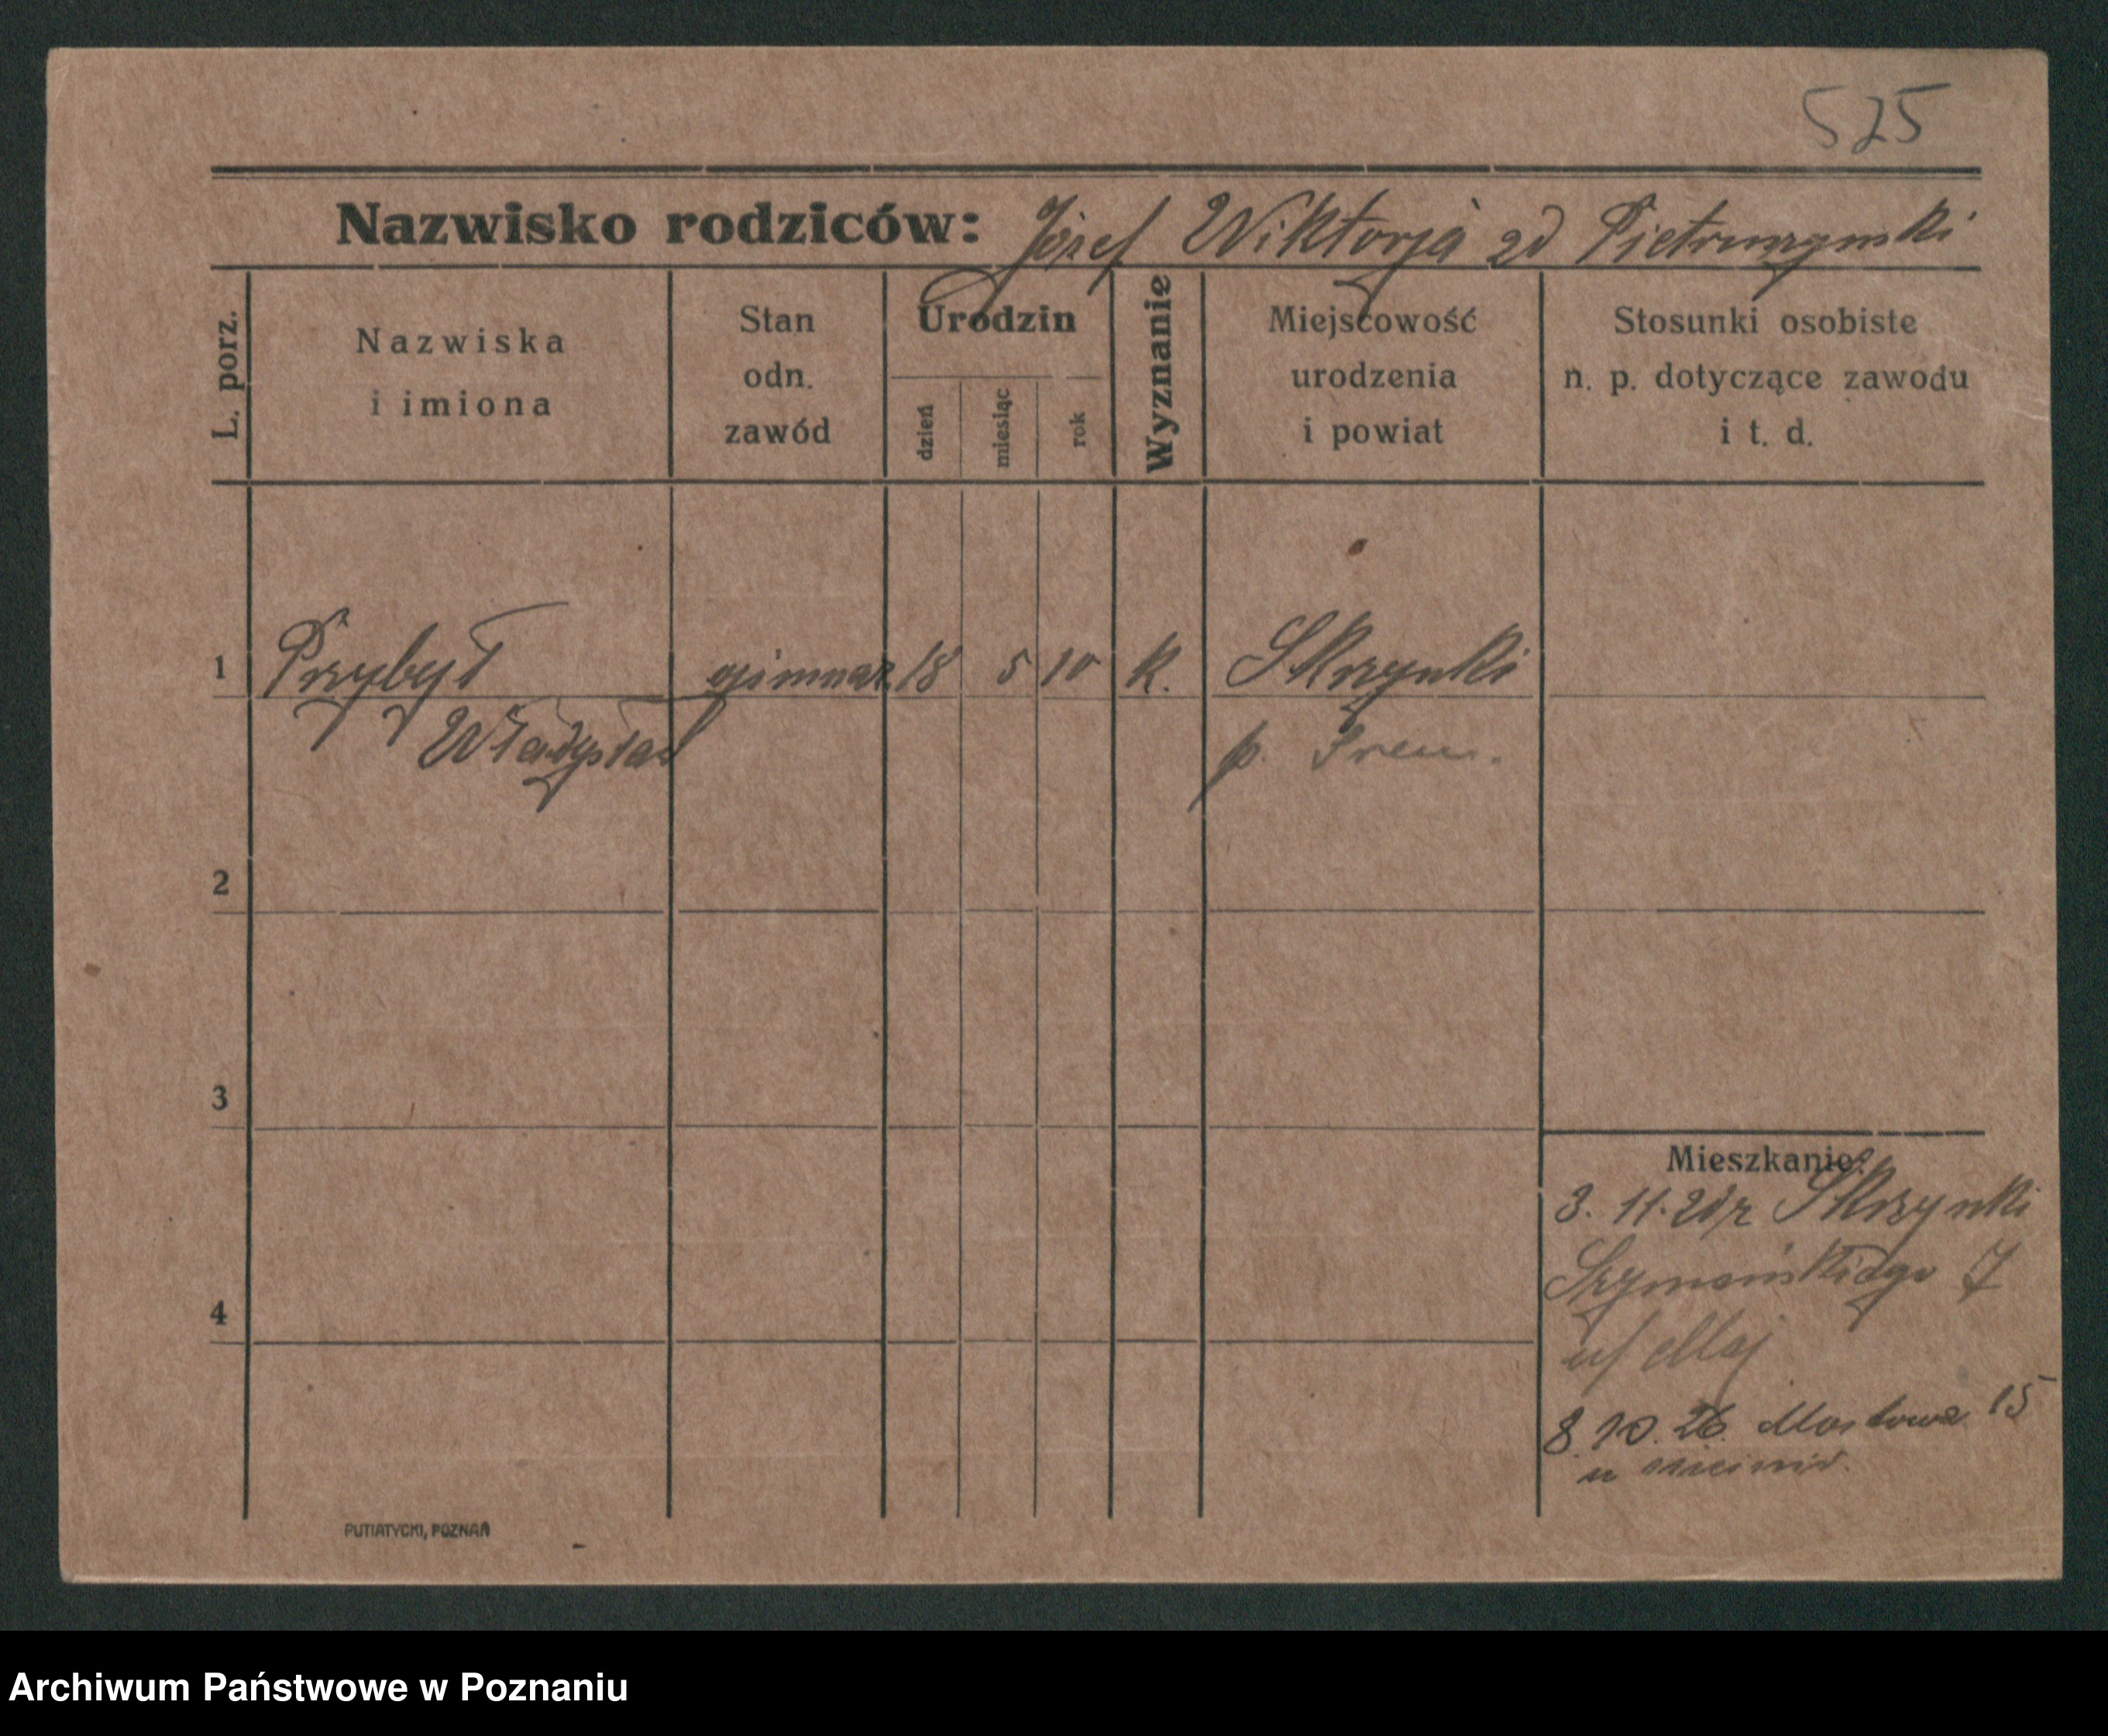 525
Nazwisko rodziców: Józef Wiktorja zd Pietruszynski
L. porz.
Nazwiska
i imiona
Stan
odn.
zawód
Urodzin
dzień
miesiąc
rok
Wyznanie
Miejscowość
urodzenia
i powiat
Stosunki osobiste
n. p. dotyczące zawodu
i t. d.
1 Przybył gimnaz. 18 5 10 k. Skrzynki
Władysław p. Śrem.
2
3
4
Mieszkanie:
3. 11. Skrzynki
Szymańskiego 7
u/ Maj
8. 10. 26. Mostowa 15
u
PUTIATYCKI, POZNAŃ
Archiwum Państwowe w Poznaniu